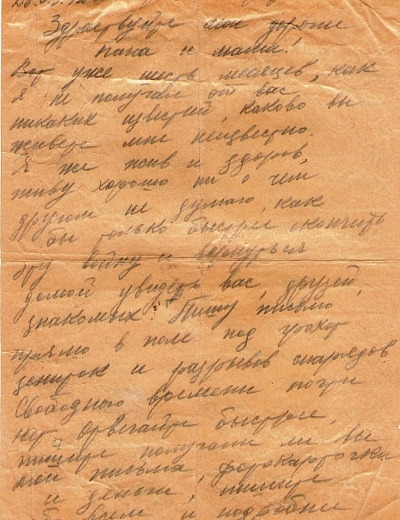 Здравствуйте мои дорогие
папа и мама!
Вот уже шесть месяцев, как
я не получаю от вас
никаких известий, каково вы
живете мне неизвестно.
Я же жив и здоров,
живу хорошо ни о чем
другом не думаю, как
бы только быстрее окончить
эту войну и вернуться
домой увидеть вас, друзей,
знакомых. Пишу письмо
прямо в поле под грохот
зениток и разрывов снарядов
Свободного времени почти
нет отвечайте быстрее,
пишите получали ли вы
мои письма, фотокарточки
и деньги, пишите
и подробно